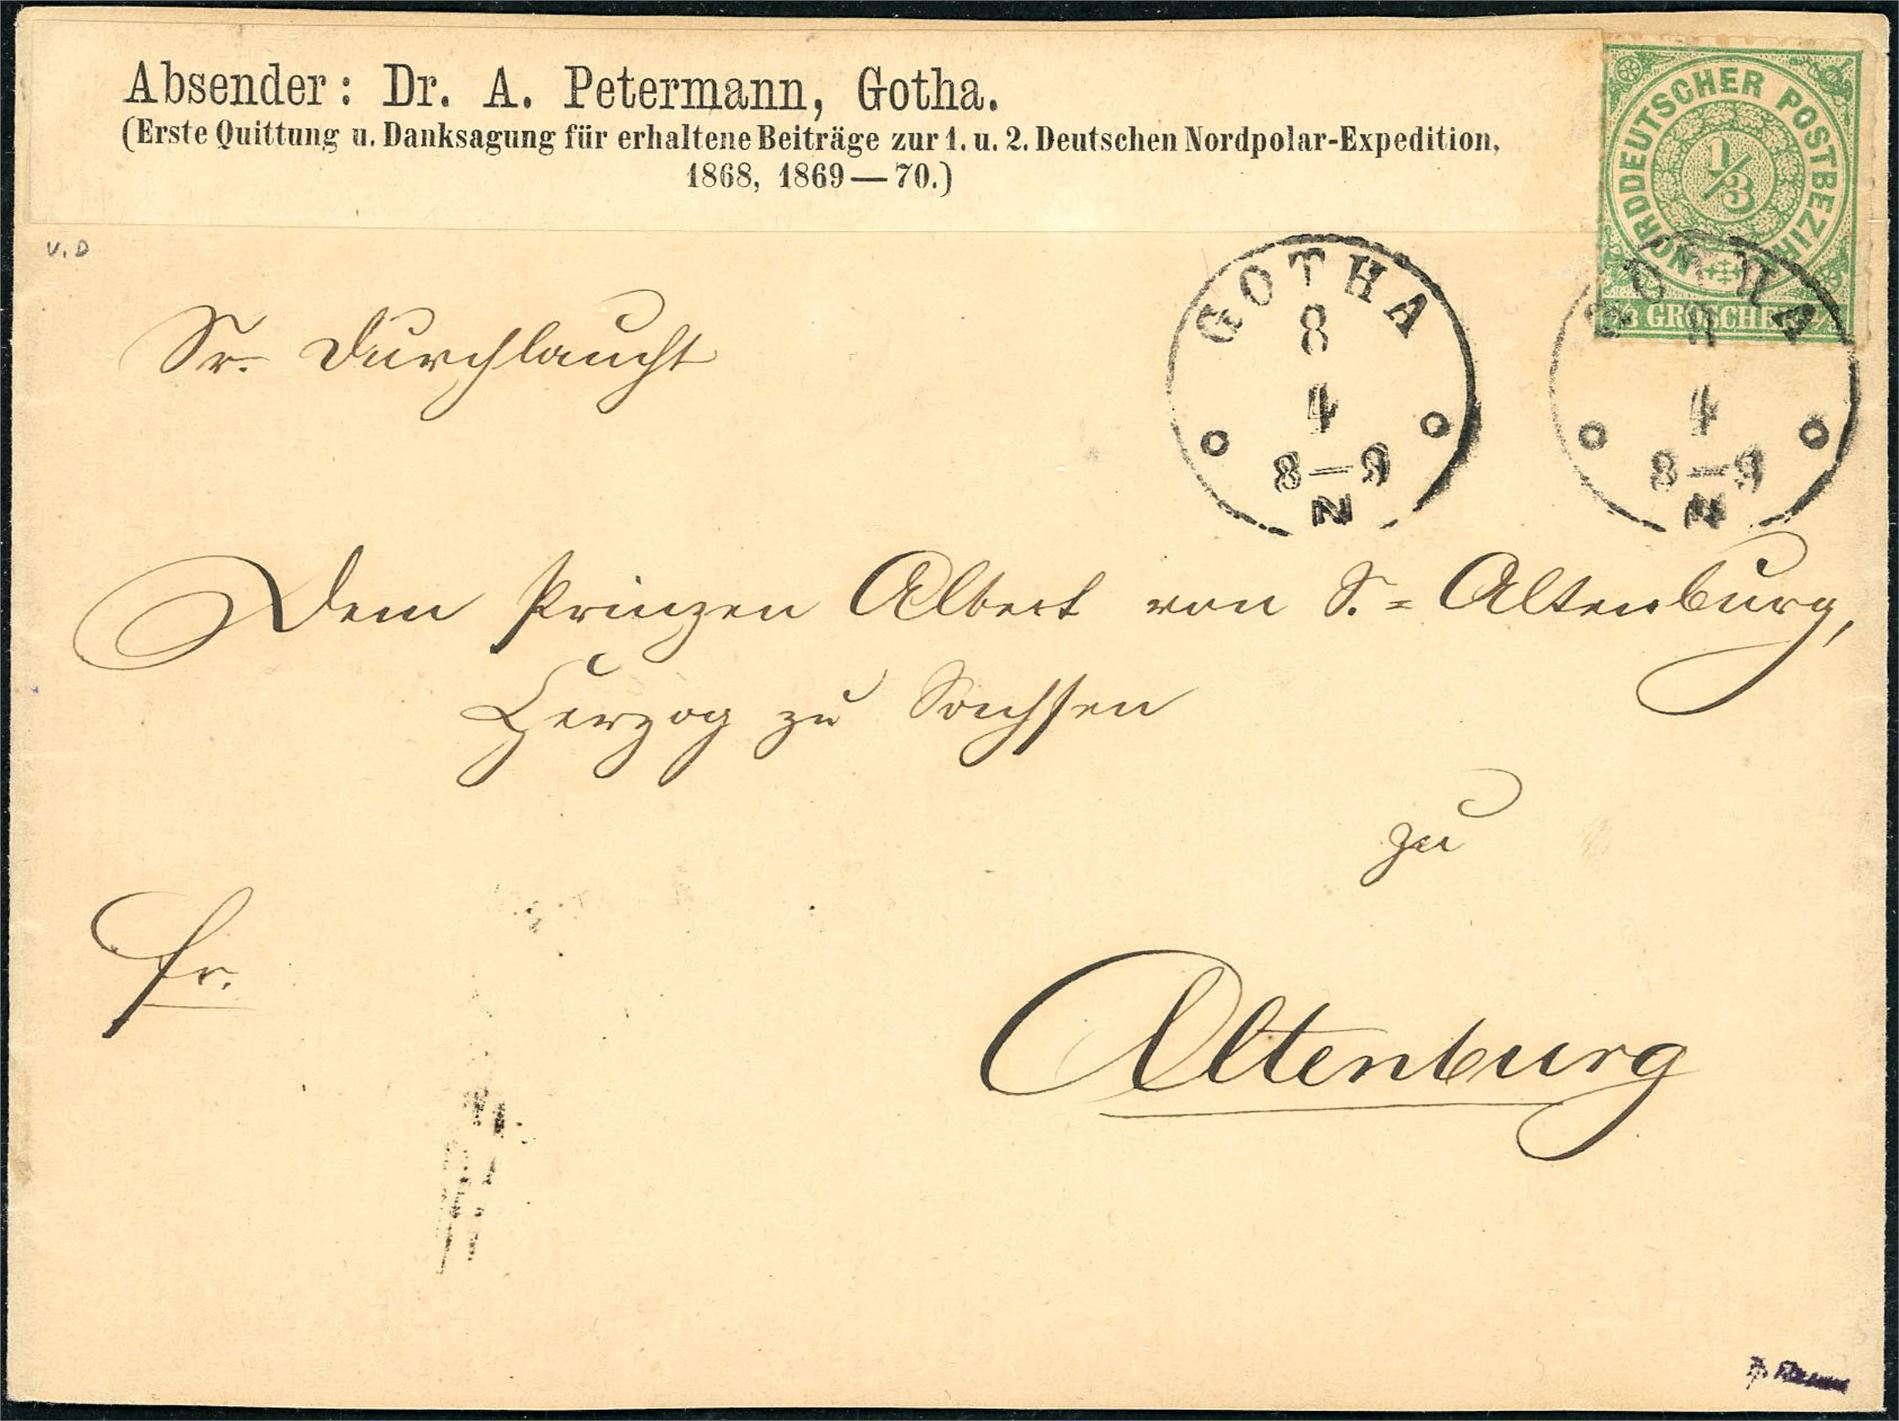 Absender: Dr. A. Petermann, Gotha.
(Erste Quittung u. Danksagung für erhaltene Beiträge zur 1. u. 2. Deutschen Nordpolar-Expedition,
1868, 1869—70.)
NORDDEUTSCHER POSTBEZIRK
1/3
1/3 GROSCHEN 1/3
V.D
GOTHA
8
4
8—9
N
GOTHA
8
4
8—9
N
Sr. Durchlaucht
Dem Prinzen Albert von S.=Altenburg,
Herzog zu Sachsen
zu
fr.
Altenburg